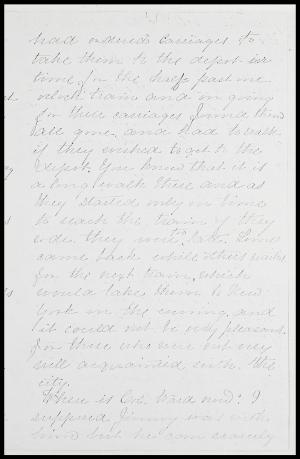 had ordered carriages to
take them to the depot in
time for the half past one
o'clock train and on going
for their carriages found them
all gone, and had to walk
if they wished to get to the
depot. You know that it is
a long walk there and as
they started only in time
to reach the train if they
rode they were to late. Some
came back while others waited
for the next train, which
would take them to New
York in the evening and
it could not be very pleasant
for those who were not very
well acquainted with the
city.
Where is Col. Ward now? I
supposed Jimmy was with
him but he can scarcely